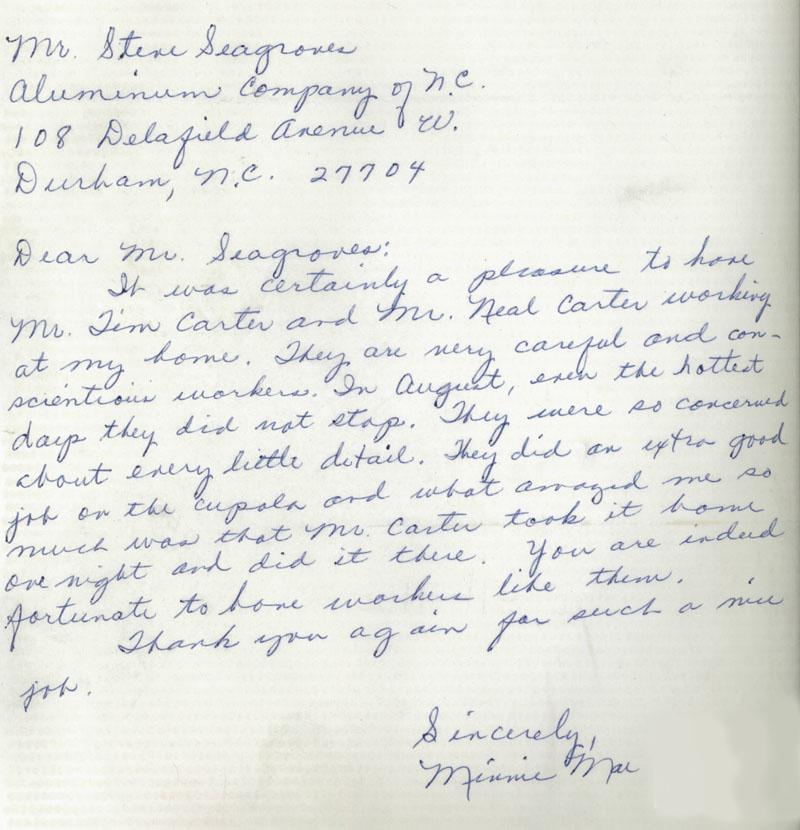 Mr. Steve Seagroves
Aluminum Company of N.C.
108 Delafield Avenue W.
Durham, N.C. 27704
Dear Mr. Seagroves:
It was certainly a pleasure to have
Mr. Tim Carter and Mr. Neal Carter working
at my home. They are very careful and con-
scientious workers. In August, even the hottest
days they did not stop. They were so concerned
about every little detail. They did an extra good
job on the cupola and what amazed me so
much was that Mr. Carter took it home
one night and did it there. You are indeed
fortunate to have workers like them.
Thank you again for such a nice
job.
Sincerely,
Minnie Mae